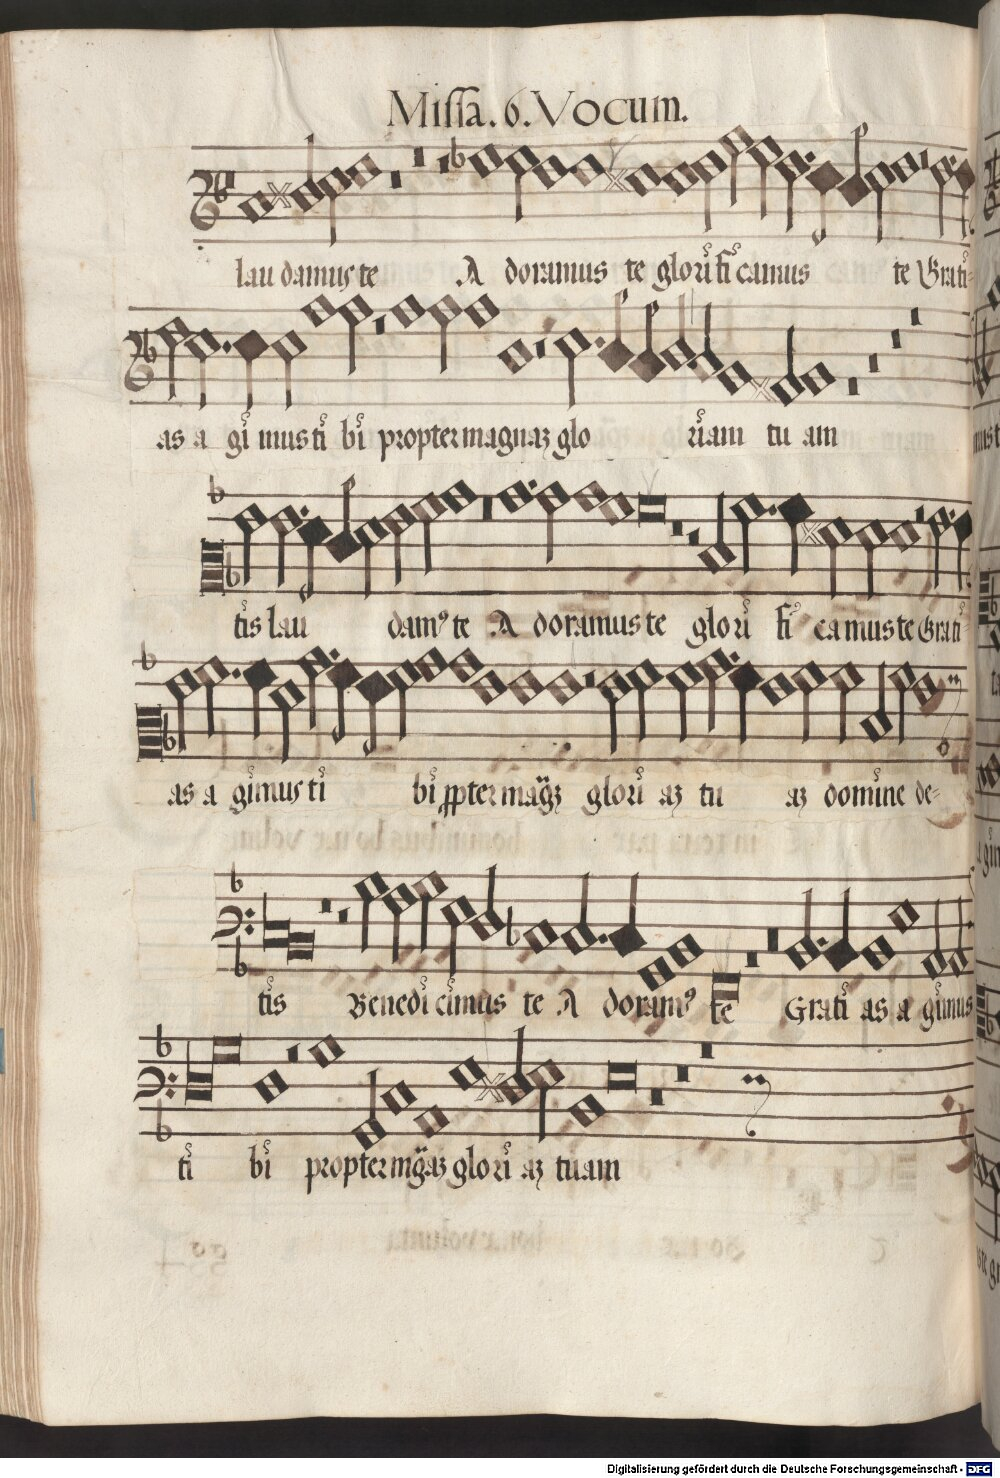 Missa. 6. Vocum.
lau damus te A doramus te glori fi camus te Grati-
as a gi mus ti bi propter magnaz glo riam tu am
tis lau damꝰ te A doramus te glori fi camus te Grati
as a gimus ti bi ꝓpter mag̃z glori az tu az domine de-
tis Benedi cimus te A doramꝰ te Grati as a gimus
ti bi propter mg̃az glori az tuam
Digitalisierung gefördert durch die Deutsche Forschungsgemeinschaft - DFG